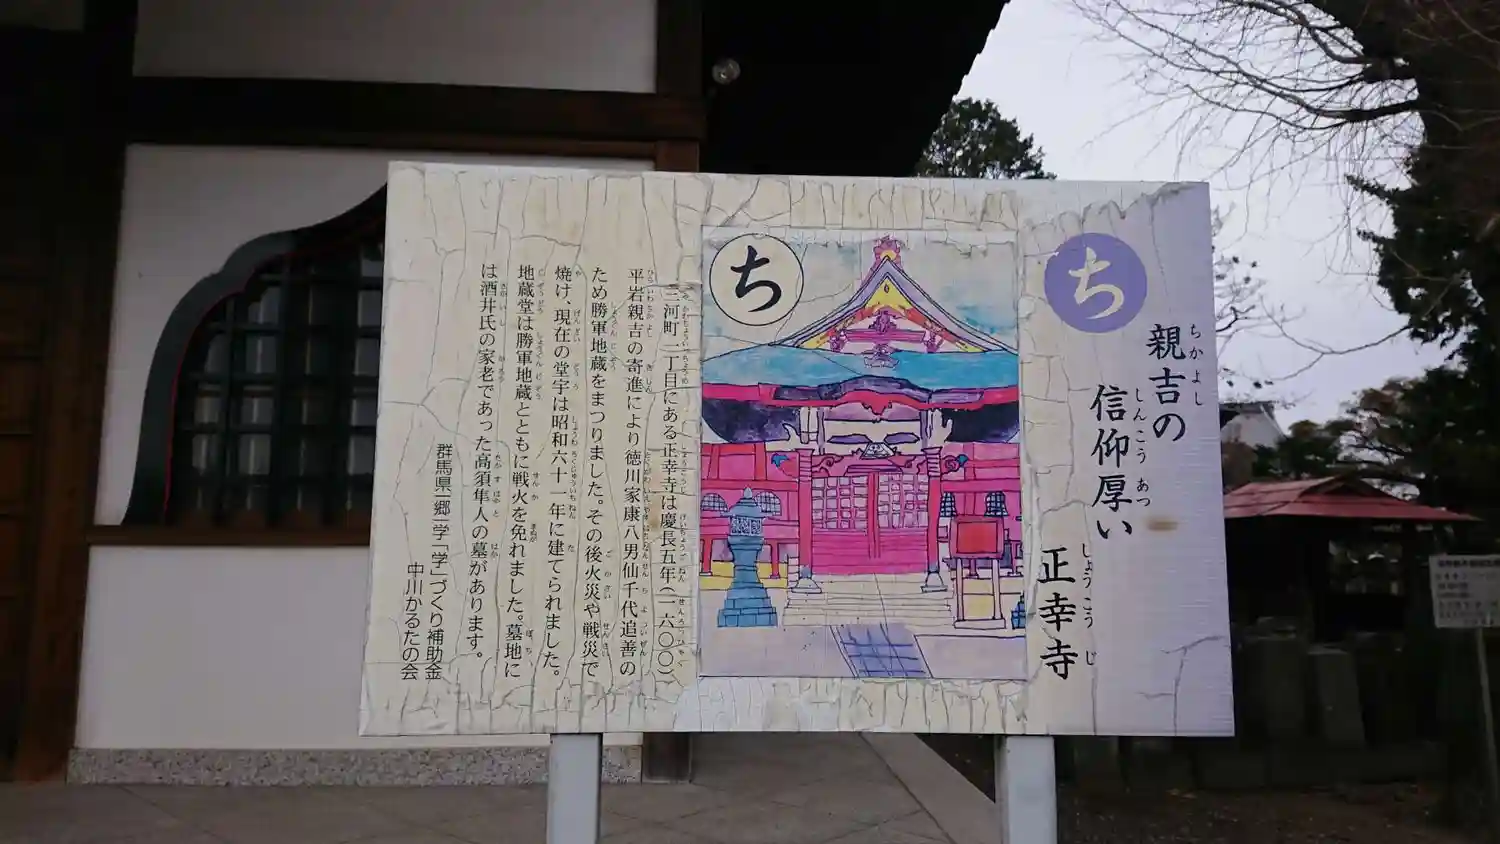 ち
親吉の
ちかよし
信仰厚い
しんこうあつ
正幸寺
しょうこうじ
ち
三河町一丁目にある正幸寺は慶長五年(一六〇〇)
平岩親吉の寄進により徳川家康八男仙千代追善の
ため勝軍地蔵をまつりました。その後火災や戦災で
焼け、現在の堂宇は昭和六十一年に建てられました。
地蔵堂は勝軍地蔵とともに戦火を免れました。墓地に
は酒井氏の家老であった高須隼人の墓があります。
群馬県一郷一学「学」づくり補助金
中川かるたの会